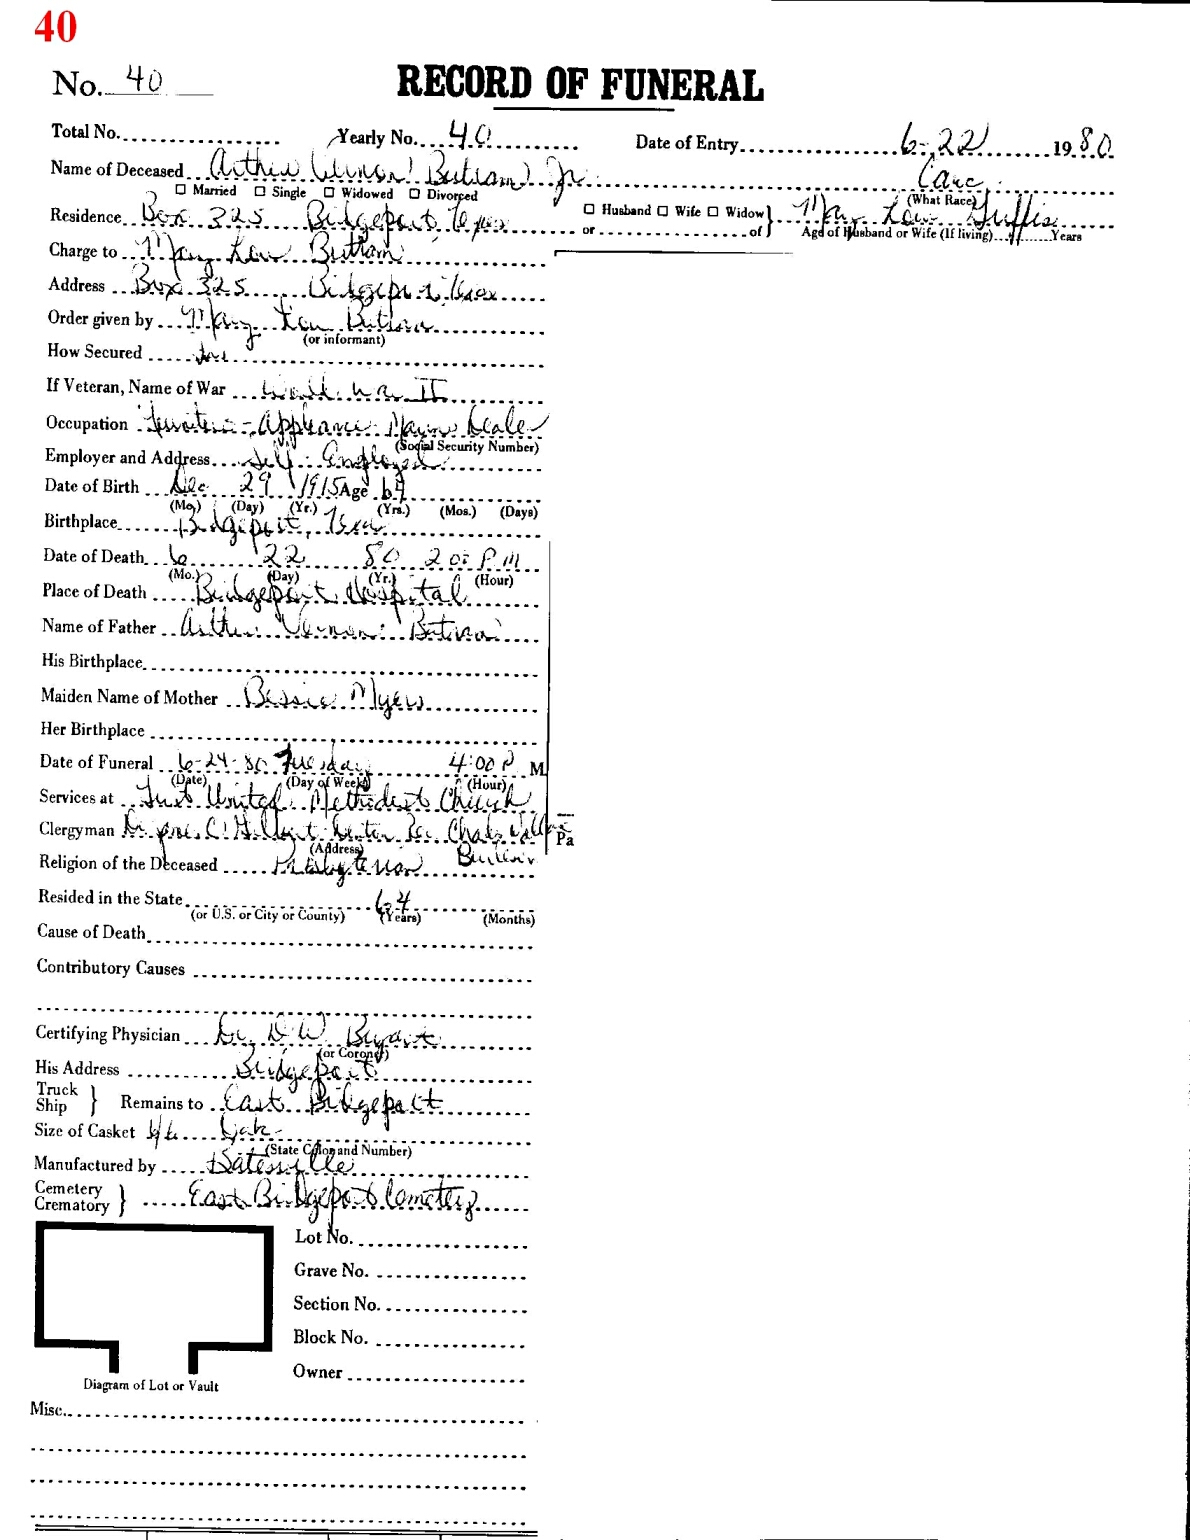 40
No. 40 RECORD OF FUNERAL
Total No. Yearly No. 40 Date of Entry 6-22 1980
Name of Deceased Arthur Vernon Butram Jr. Cauc.
☐ Married ☐ Single ☐ Widowed ☐ Divorced (What Race)
Residence Box 325 Bridgeport Texas ☐ Husband ☐ Wife ☐ Widow } or of Mary Lou
Age of Husband or Wife (If living) Years
Charge to Mary Lou Butram
Address Box 325 Bridgeport Texas
Order given by Mary Lou Butram
(or informant)
How Secured
If Veteran, Name of War World War II
Occupation Furniture - Appliance Dealer
(Social Security Number)
Employer and Address Self Employed
Date of Birth Dec 29 1915 Age 64
(Mo.) (Day) (Yr.) (Yrs.) (Mos.) (Days)
Birthplace Bridgeport, Texas
Date of Death 6 22 80 2 05 P M
(Mo.) (Day) (Yr.) (Hour)
Place of Death Bridgeport Hospital
Name of Father Arthur Vernon Butram
His Birthplace
Maiden Name of Mother Bessie Myers
Her Birthplace
Date of Funeral 6-24-80 Tuesday 4:00 P M
(Date) (Day of Week) (Hour)
Services at First United Methodist Church
Clergyman Denton Rev.
(Address) Pa
Religion of the Deceased Presbyterian
Resided in the State 64
(or U.S. or City or County) (Years) (Months)
Cause of Death
Contributory Causes
Certifying Physician Dr. D W Bryant
(or Coroner)
His Address Bridgeport
Truck
Ship } Remains to East Bridgeport
Size of Casket 6/6 Oak
(State Color and Number)
Manufactured by Batesville
Cemetery
Crematory } East Bridgeport Cemetery
Lot No.
Grave No.
Section No.
Block No.
Owner
Diagram of Lot or Vault
Misc.